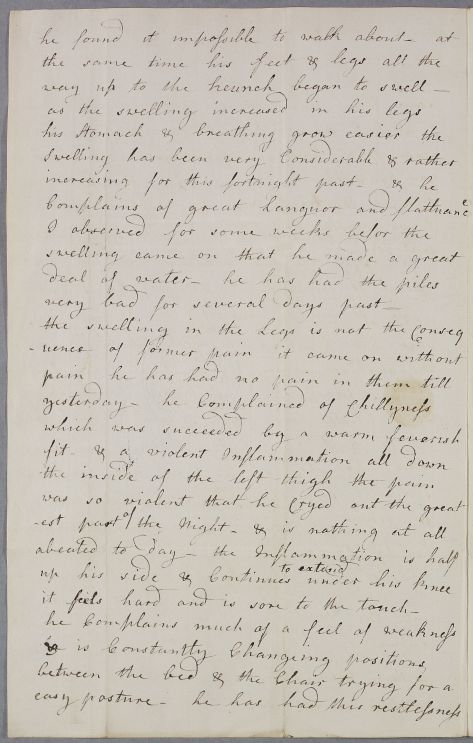 he found it impossible to walk about - at
the same time his feet & legs all the
way up to the heunch began to swell -
as the swelling increased in his legs
his Stomach & breathing grow easier the
swelling has been very Considerable & rather
increasing for this fortnight past - & he
Complains of great Languor and flattuance
I observed for some weeks befor the
swelling came on that he made a great
deal of water - he has had the piles
very bad for several days past -
the swelling in the Legs is not the Conseq
-uence of former pain it came on without
pain he has had no pain in them till
yesterday - he Complained of Chillyness
which was succeeded by a warm feverish
fit - & a violent Inflammation all down
the inside of the left thigh the pain
was so violent that he Cryed out the great
-est part of the Night - & is nothing at all
abeated to day - the Inflammation is half
up his side & Continues to extend under his knee
it feels hard and is sore to the touch -
he Complains much of a feel of weakness
is Constantly Changeing positions,
between the bed & the Chair trying for a
easy posture - he has had this restlessness